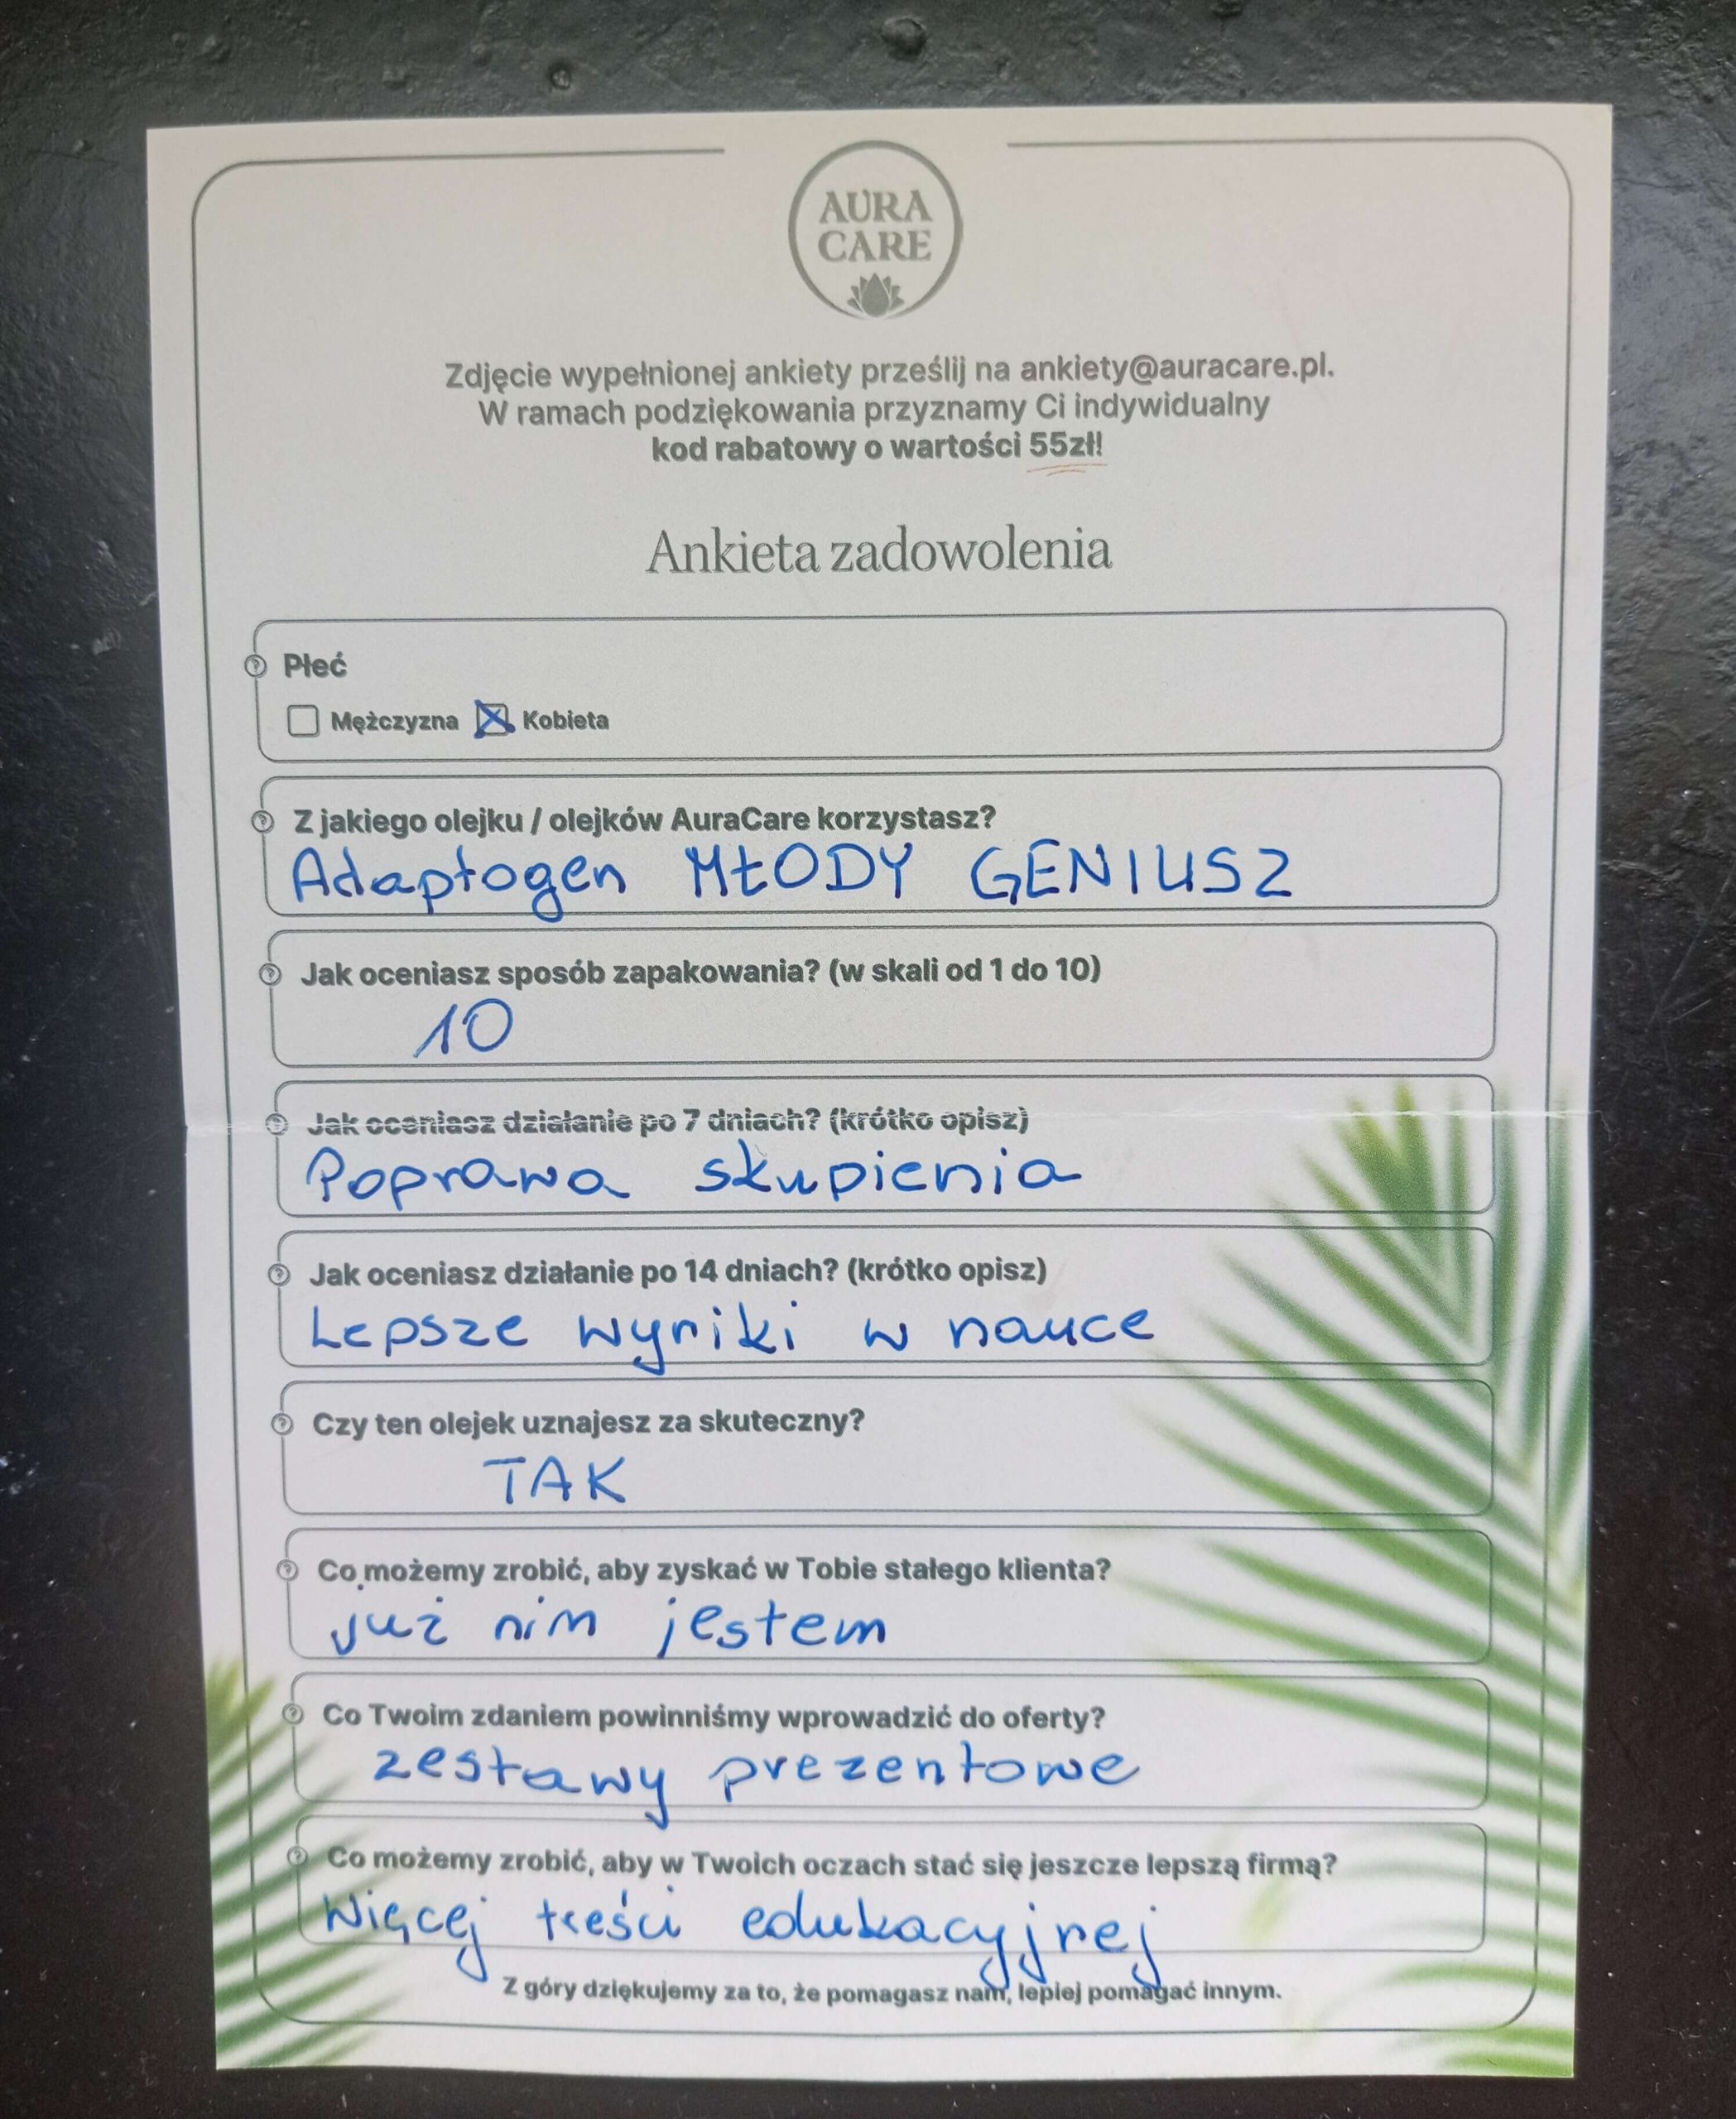 AURA
CARE
Zdjęcie wypełnionej ankiety prześlij na ankiety@auracare.pl.
W ramach podziękowania przyznamy Ci indywidualny
kod rabatowy o wartości 55zł!
Ankieta zadowolenia
Płeć
Mężczyzna Kobieta
Z jakiego olejku / olejków AuraCare korzystasz?
Adaptogen MŁODY GENIUSZ
Jak oceniasz sposób zapakowania? (w skali od 1 do 10)
10
Jak oceniasz działanie po 7 dniach? (krótko opisz)
Poprawa skupienia
Jak oceniasz działanie po 14 dniach? (krótko opisz)
Lepsze wyniki w nauce
Czy ten olejek uznajesz za skuteczny?
TAK
Co możemy zrobić, aby zyskać w Tobie stałego klienta?
już nim jestem
Co Twoim zdaniem powinniśmy wprowadzić do oferty?
zestawy prezentowe
Co możemy zrobić, aby w Twoich oczach stać się jeszcze lepszą firmą?
Więcej treści edukacyjnej
Z góry dziękujemy za to, że pomagasz nam, lepiej pomagać innym.